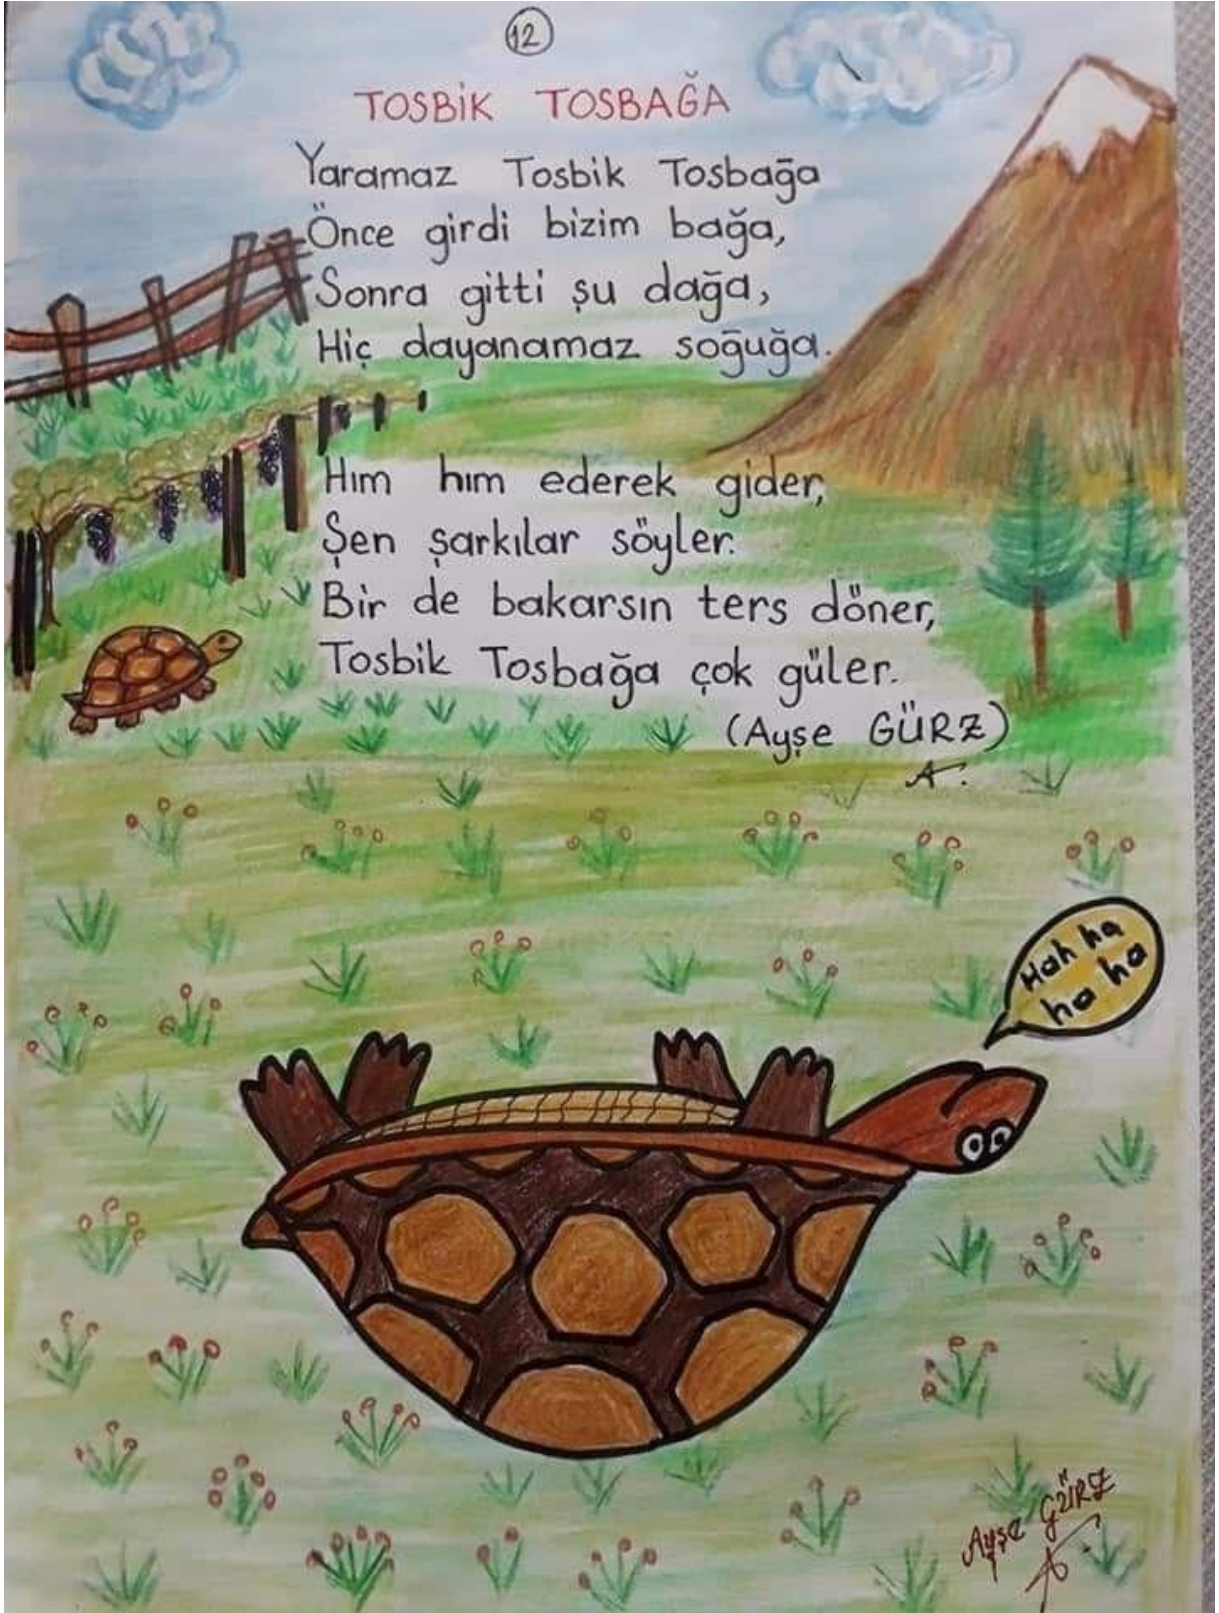 12
TOSBİK TOSBAĞA
Yaramaz Tosbik Tosbağa
Önce girdi bizim bağa,
Sonra gitti şu dağa,
Hiç dayanamaz soğuğa.
Hım hım ederek gider,
Şen şarkılar söyler.
Bir de bakarsın ters döner,
Tosbik Tosbağa çok güler.
(Ayşe GÜRZ)
A.
Hah ha
ha ha
Ayşe GÜRZ
A.